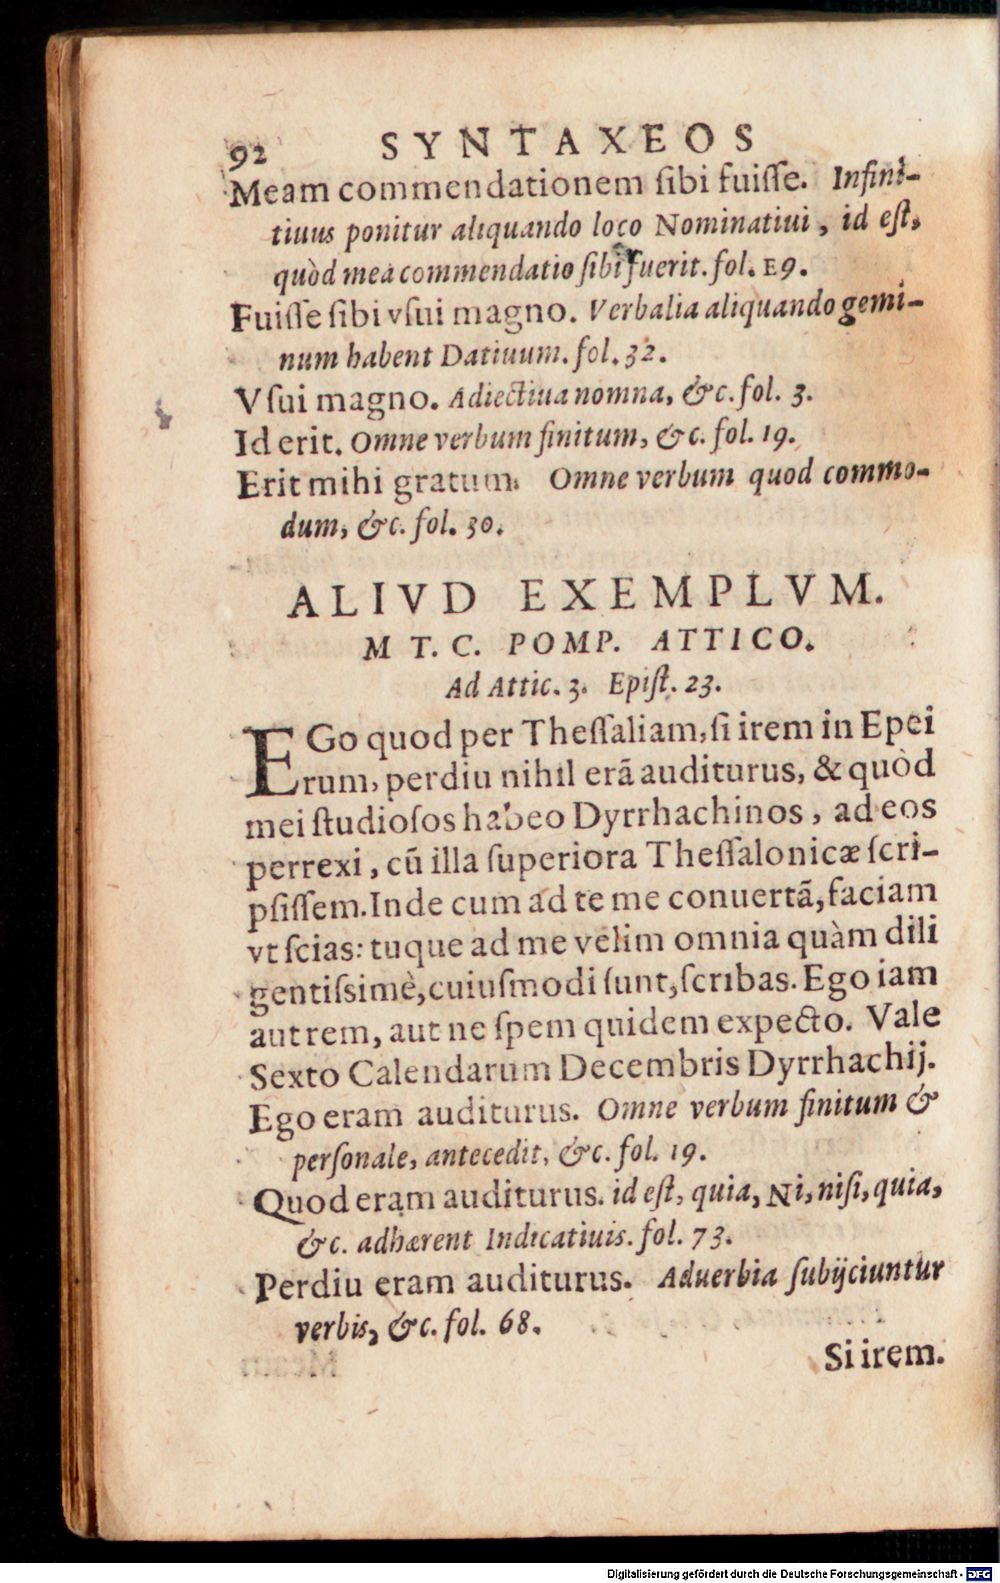 92 SYNTAXEOS
Meam commendationem ſibi fuiſſe. Infini-
tiuus ponitur aliquando loco Nominatiui, id eſt,
quòd mea commendatio ſibi fuerit. fol. E9.
Fuiſſe ſibi vſui magno. Verbalia aliquando gemi-
num habent Datiuum. fol. 32.
Vſui magno. Adiectiua nomna, &c. fol. 3.
Id erit. Omne verbum finitum, &c. fol. 19.
Erit mihi gratum. Omne verbum quod commo-
dum, &c. fol. 30.
ALIVD EXEMPLVM.
M T. C. POMP. ATTICO.
Ad Attic. 3. Epiſt. 23.
EGo quod per Theſſaliam, ſi irem in Epei
rum, perdiu nihil erã auditurus, & quòd
mei ſtudioſos habeo Dyrrhachinos, ad eos
perrexi, cũ illa ſuperiora Theſſalonicæ ſcri-
pſiſſem. Inde cum ad te me conuertã, faciam
vt ſcias: tuque ad me velim omnia quàm dili
gentiſsimè, cuiuſmodi ſunt, ſcribas. Ego iam
aut rem, aut ne ſpem quidem expecto. Vale
Sexto Calendarum Decembris Dyrrhachij.
Ego eram auditurus. Omne verbum finitum &
perſonale, antecedit, &c. fol. 19.
Quod eram auditurus. id eſt, quia, Ni, niſi, quia,
&c. adhærent Indicatiuis. fol. 73.
Perdiu eram auditurus. Aduerbia ſubijciuntur
verbis, &c. fol. 68.
Si irem.
Digitalisierung gefördert durch die Deutsche Forschungsgemeinschaft - DFG